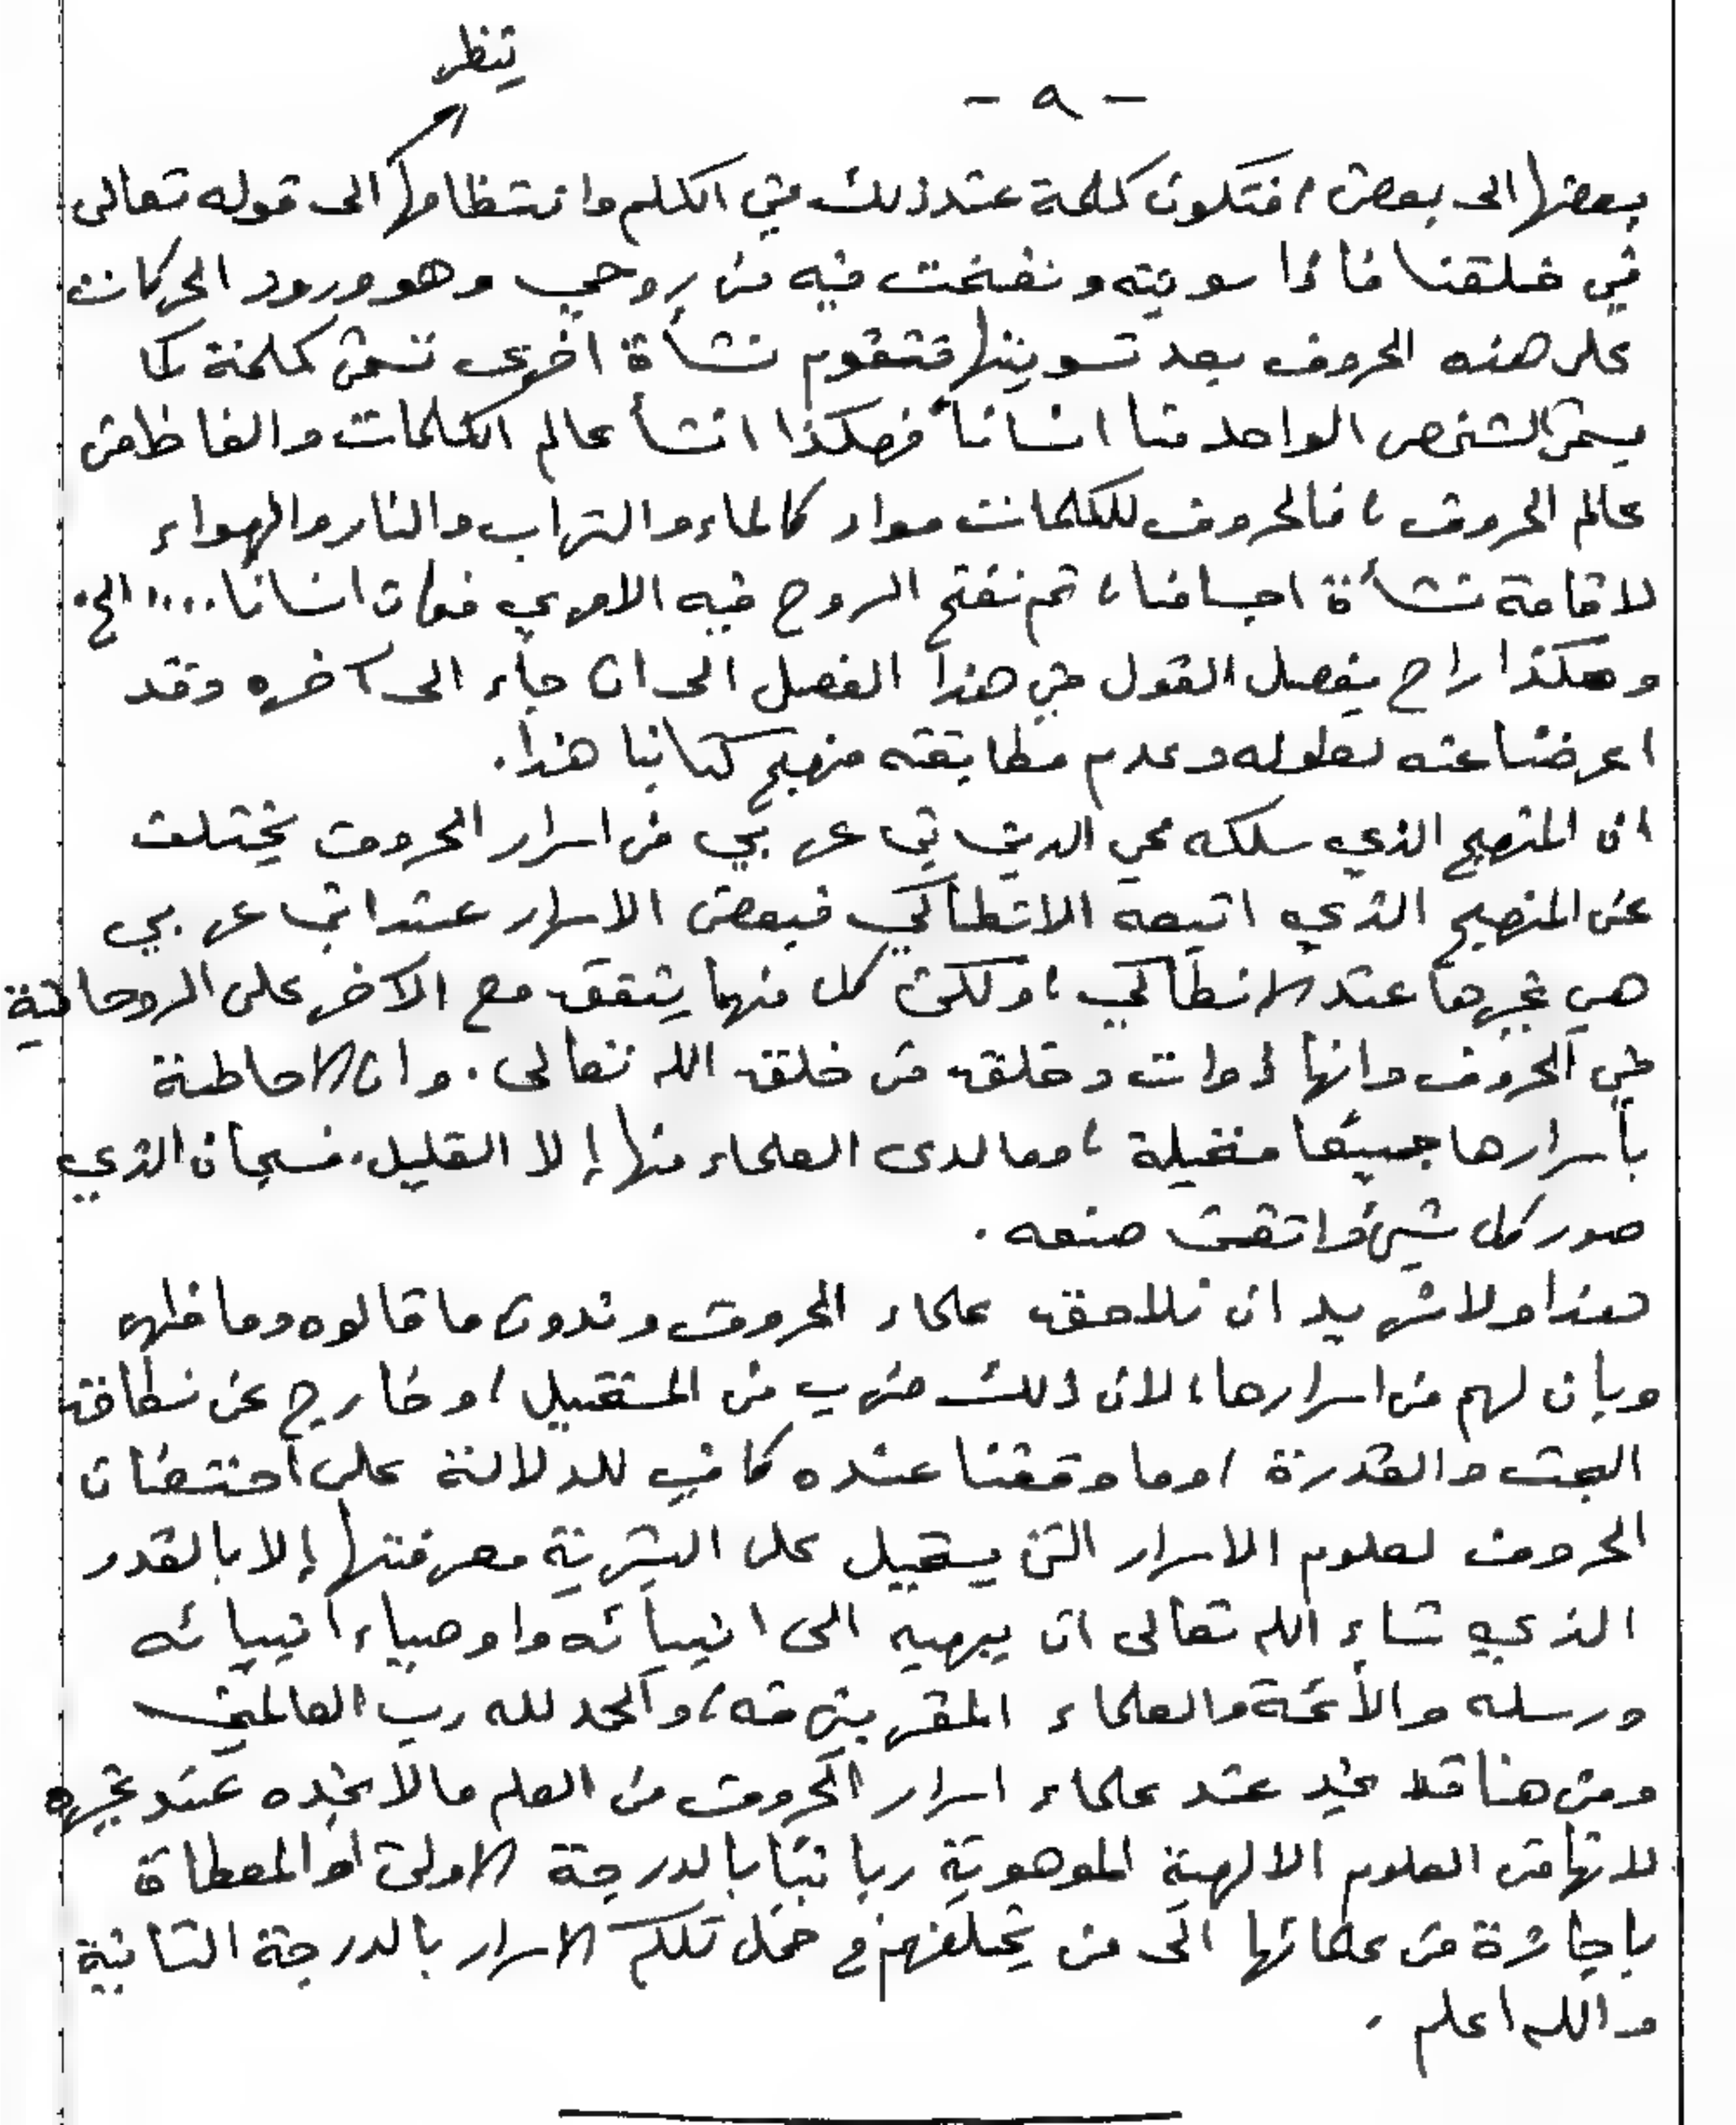 تنظر
- ٩ -
بعضها الى بعض، فتكون كلمة عند ذلك من الكلم وانتظامها الى قوله تعالى
في خلقنا فاذا سويته ونفخت فيه من روحي وهو ورود الحركات
على هذه الحروف بعد تسويتها فتقوم نشأة اخرى تسمى كلمة كما
يسمى الشخص الواحد منا انساناً فهكذا انشأ عالم الكلمات والفاظ من
عالم الحروف، فالحروف للكلمات مواد كالماء والتراب والنار والهواء
لاقامة نشأة اجسامنا، ثم نفخ الروح فيه الامري فكان انسانا .... الخ.
وهكذا راح يفصل القول في هذا الفصل الى ان جاء الى آخره وقد
اعرضنا عنه لطوله وعدم مطابقته منهج كتابنا هذا.
ان المنهج الذي سلكه محي الدين بن عربي في اسرار الحروف يختلف
عن المنهج الذي اتبعه الانطاكي فبعض الاسرار عند ابن عربي
هي غيرها عند الانطاكي، ولكن كل منهما يتفق مع الآخر على الروحانية
في الحروف وانها ذوات وخلق من خلق الله تعالى. وان الاحاطة
بأسرارها جميعا مستحيلة، وما لدى العلماء منها إلا القليل. فسبحان الذي
صور كل شيء واتقن صنعه.
هذا ولا نريد ان نلاحق علماء الحروف وندون ما قالوه وما ظهر
وبان لهم من اسرارها، لان ذلك ضرب من المستحيل، وخارج عن نطاق
البحث والقدرة، وما وقفنا عنده كافي للدلالة على احتضان
الحروف لعلوم الاسرار التي يستحيل على البشرية معرفتها إلا بالقدر
الذي شاء الله تعالى ان يهبه الى انبيائه واوصياء انبيائه
ورسله والأئمة والعلماء المقربين منه، والحمد لله رب العالمين
ومن هنا قد نجد عند علماء اسرار الحروف من العلم ما لا نجده عند غيره
لانها من العلوم الالهية الموهوبة ربانيا بالدرجة الاولى او المعطاة
باجازة من علمائها الى من يخلفهم في حمل تلك الاسرار بالدرجة الثانية
والله اعلم.